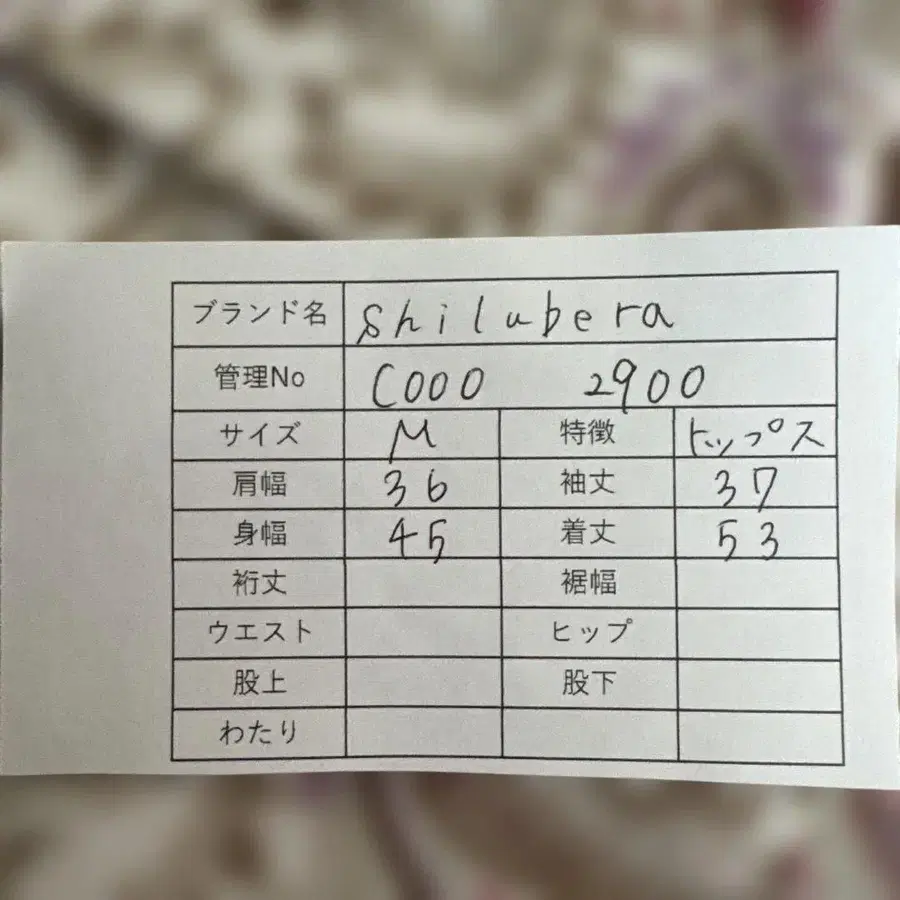 ブランド名 Shilubera
管理No C000 2900
サイズ M 特徴 トップス
肩幅 36 袖丈 37
身幅 45 着丈 53
裄丈 裾幅
ウエスト ヒップ
股上 股下
わたり